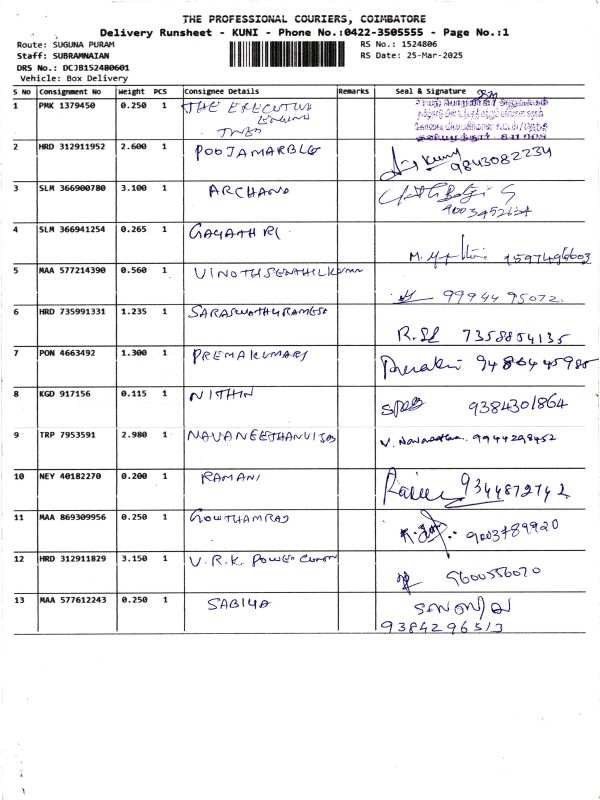 THE PROFESSIONAL COURIERS, COIMBATORE
Delivery Runsheet - KUNI - Phone No.:0422-3505555 - Page No.:1
Route: SUGUNA PURAM
RS No.: 1524806
Staff: SUBRAMNAIAN
RS Date: 25-Mar-2025
DRS No.: DCJB152480601
Vehicle: Box Delivery
S No Consignment No Weight PCS Consignee Details Remarks Seal & Signature
1 PMK 1379450 0.250 1 THE EXECUTIVE
2 HRD 312911952 2.600 1 POOJAMARBLE 9843082234
3 SLM 366900780 3.100 1 ARCHANA
4 SLM 366941254 0.265 1 GAYATHRI
5 MAA 577214390 0.560 1 VINOTHSENTHILKUMAR 9994495072
6 HRD 735991331 1.235 1 SARASWATHYRAMESH R.SL 7358854135
7 PON 4663492 1.300 1 PREMAKUMARI 9486445985
8 KGD 917156 0.115 1 NITHIN 9384301864
9 TRP 7953591 2.980 1 NAVANEETHANVIJAY V. Navaneethan. 9944298452
10 NEY 40182270 0.200 1 RAMANI 9344872742
11 MAA 869309956 0.250 1 GOWTHAMRAJ 9003789920
12 HRD 312911829 3.150 1 V.R.K. POWER 9600556020
13 MAA 577612243 0.250 1 SABIYA
9384296513